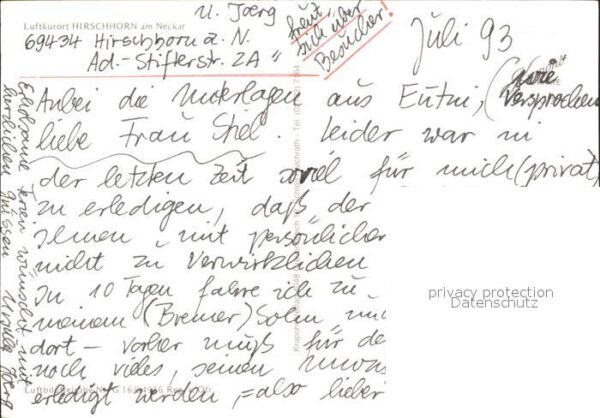 Luftkurort HIRSCHHORN am Neckar
U. Joerg
69434 Hirschhorn a. N.
Ad.-Stifterstr. 2A"
freut sich über
Besucher!
Juli 93
Anbei die Unterlagen aus Eutin, (wie versprochen
liebe Frau Stiel. Leider war in
der letzten Zeit soviel für mich (privat)
zu erledigen, daß der
Ihnen mit persönlicher
nicht zu verwirklichen
In 10 Tagen fahre ich zu
meinem (Bremer) Sohn und
dort – vorher muß für de
noch vieles, seinen Umzu
erledigt werden, = also lieber
Erholsame Ferien wünscht mit
herzlichen Grüssen Ursula Joerg
privacy protection
Datenschutz